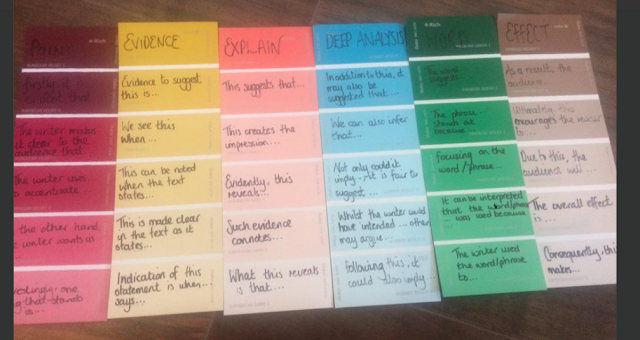 POINT
Firstly, it is
evident that
The writer makes
it clear to the
audience that
The writer uses
to accentuate
the other hand
writer wants us
one
that stands
is...
EVIDENCE
Evidence to suggest
this is...
We see this
when...
This can be noted
when the text
states...
This is made clear
in the text as it
states...
Indication of this
statement is when...
says...
EXPLAIN
This suggests that...
This creates the
impression...
Evidently, this
reveals...
Such evidence
connotes...
What this reveals
is that...
DEEP ANALYSIS
In addition to this, it
may also be
suggested that...
We can also infer
that...
Not only could it
imply - it is fair to
suggest...
Whilst the writer could
have intended...
may argue...
Following this, it
could also imply
Rich
WORD
The word
suggests
The phrase...
stands out
because
focusing on the
word/phrase...
It can be interpreted
that the word/phrase
... was used because
The writer used
the word/phrase
to...
EFFECT
As a result, the
audience...
Ultimately, this
encourages the reader
to...
Due to this, the
audience will...
The overall effect
is...
Consequently, this
makes...